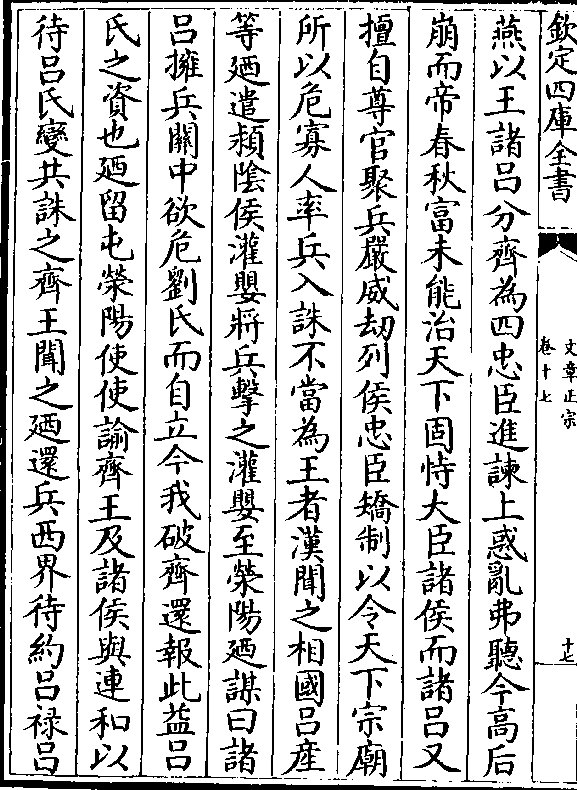 欽定四庫全書
文章正宗
卷十七
十七
燕以王諸吕分齊為四忠臣進諫上惑亂弗聽今高后
崩而帝春秋富未能治天下固恃大臣諸侯而諸吕又
擅自尊官聚兵嚴威劫列侯忠臣矯制以令天下宗廟
所以危寡人率兵入誅不當為王者漢聞之相國吕産
等廼遣潁陰侯灌嬰將兵擊之灌嬰至滎陽廼謀曰諸
吕擁兵關中欲危劉氏而自立今我破齊還報此益吕
氏之資也廼留屯滎陽使使諭齊王及諸侯與連和以
待吕氏變共誅之齊王聞之廼還兵西界待約吕禄吕